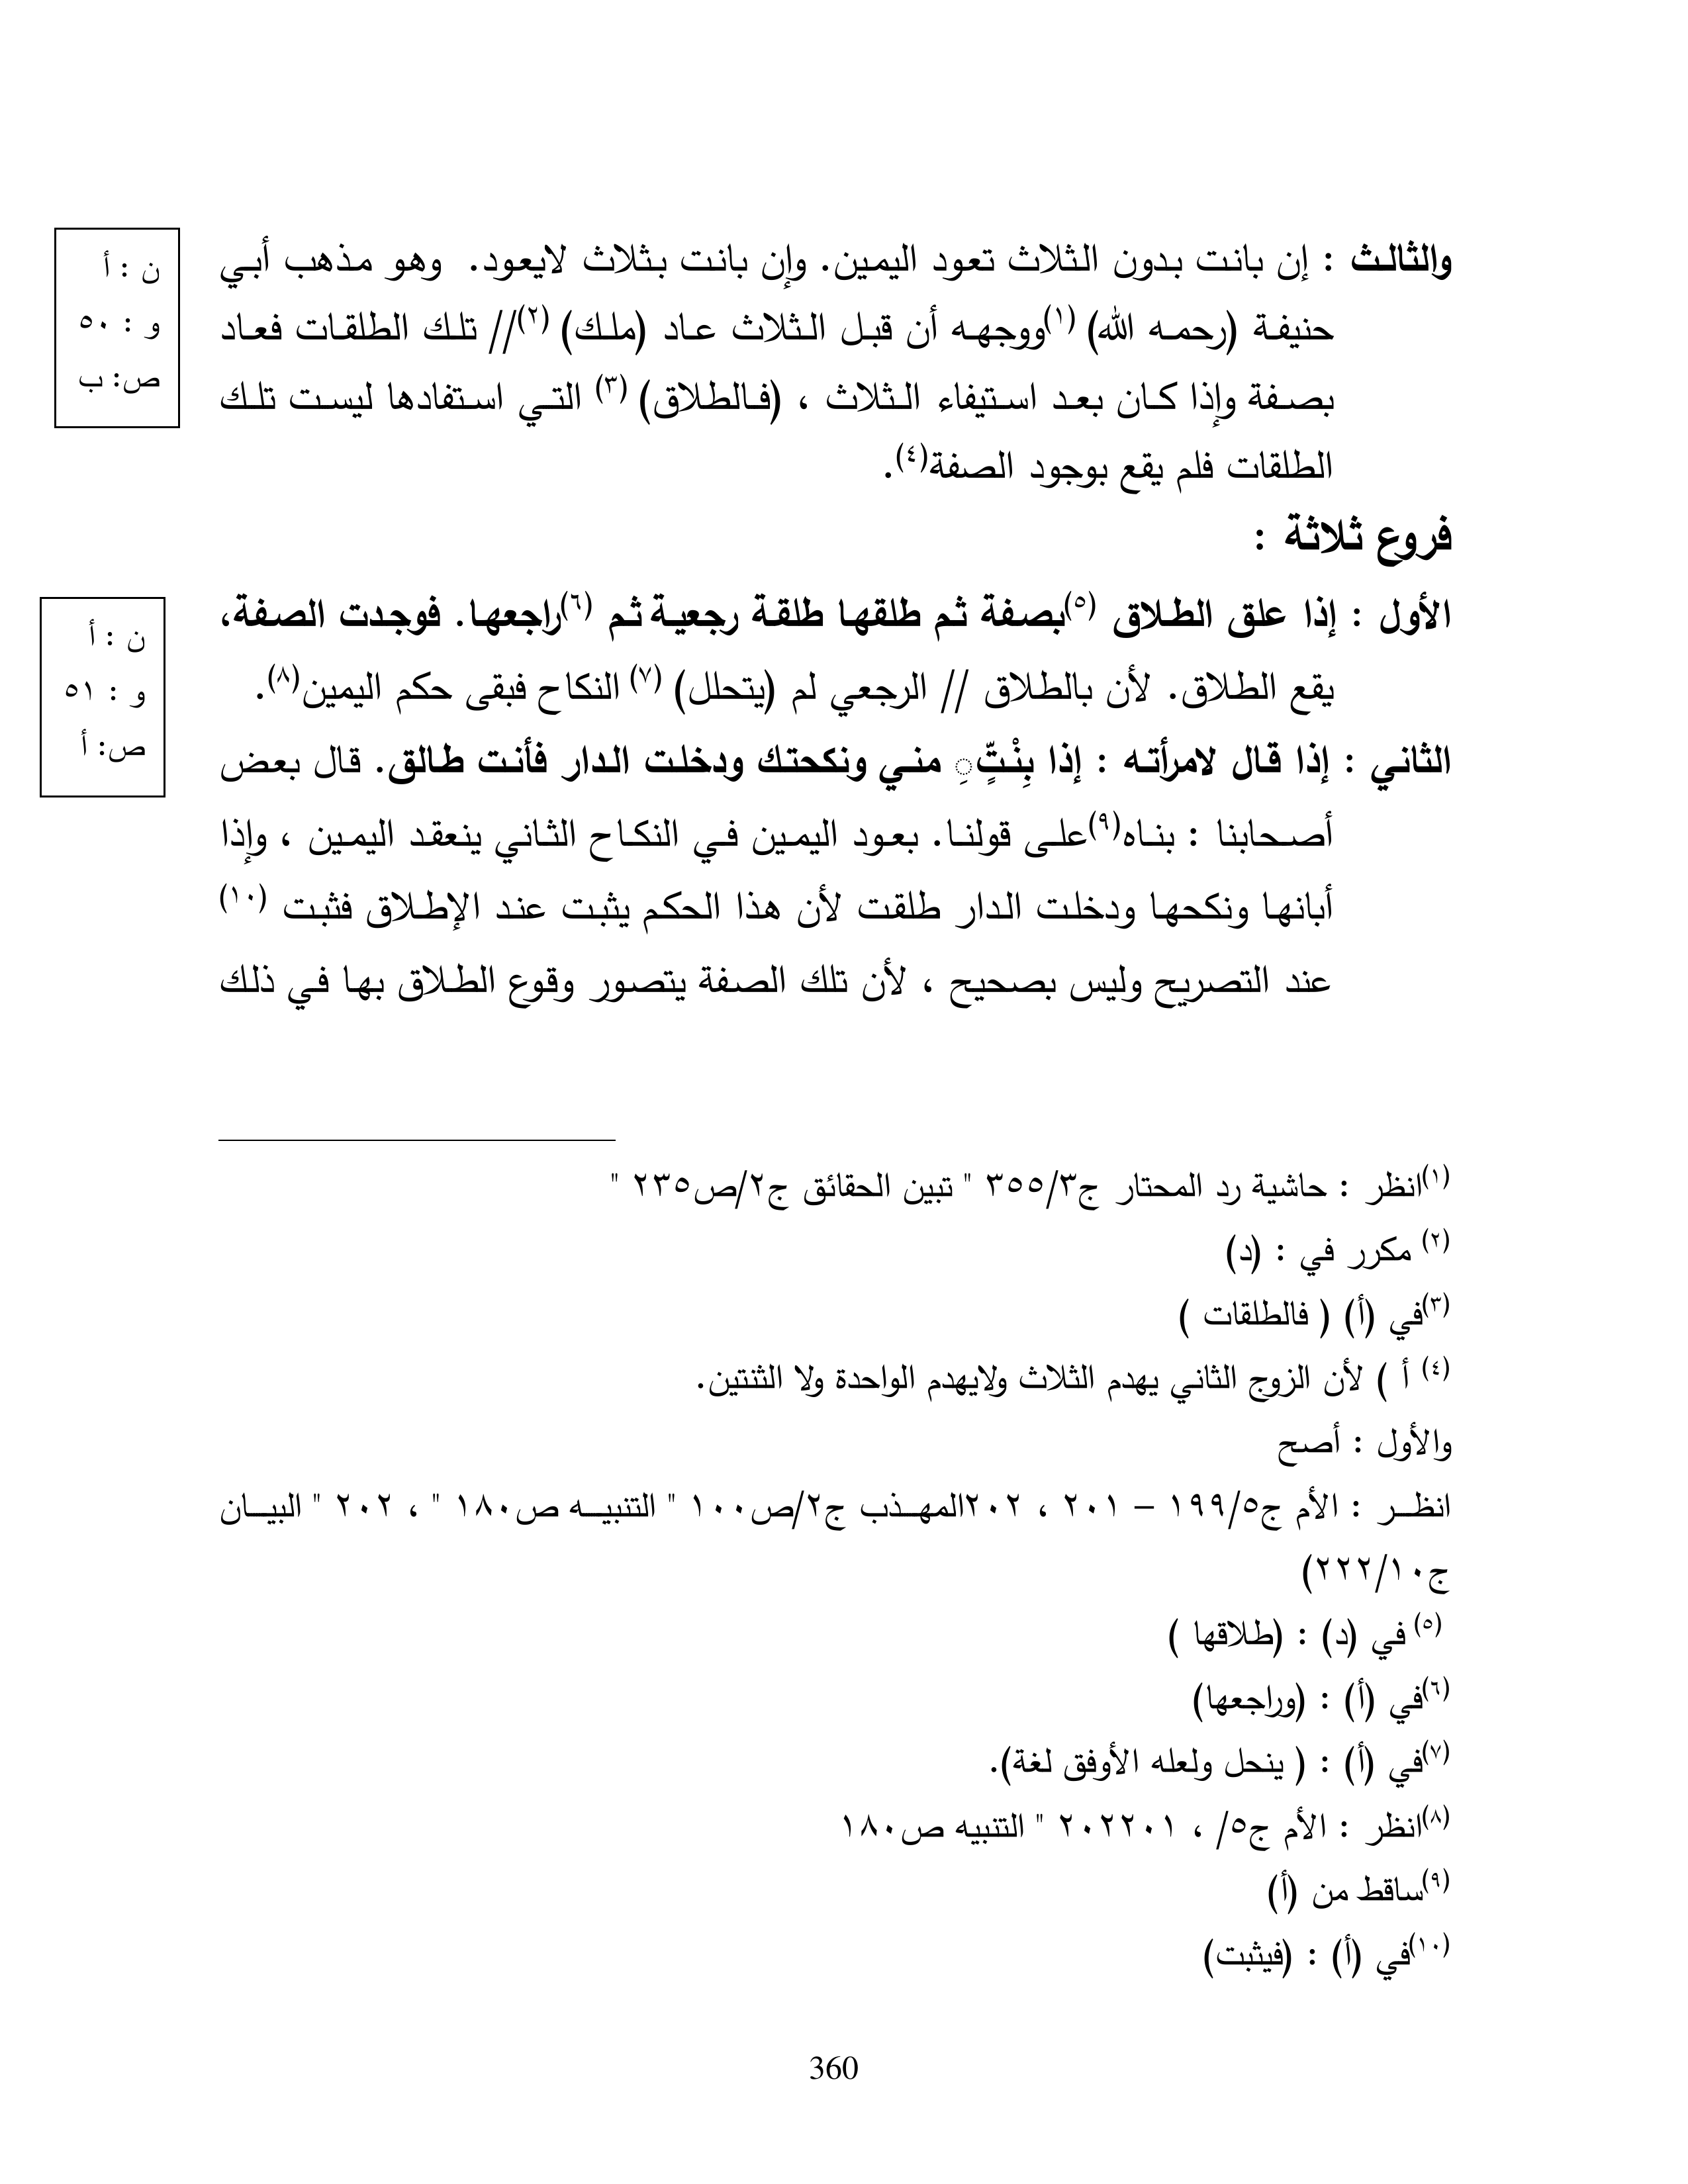 والثالث : إن بانت بدون الثلاث تعود اليمين. وإن بانت بثلاث لايعود. وهو مذهب أبي
حنيفة (رحمه الله) (١)ووجهه أن قبل الثلاث عاد (ملك) (٢)// تلك الطلقات فعاد
بصفة وإذا كان بعد استيفاء الثلاث ، (فالطلاق) (٣) التي استفادها ليست تلك
الطلقات فلم يقع بوجود الصفة(٤).
ن : أ
و : ٥٠
ص: ب
فروع ثلاثة :
الأول : إذا علق الطلاق (٥)بصفة ثم طلقها طلقة رجعية ثم (٦)راجعها. فوجدت الصفة،
يقع الطلاق. لأن بالطلاق // الرجعي لم (يتحلل) (٧) النكاح فبقى حكم اليمين(٨).
ن : أ
و : ٥١
ص: أ
الثاني : إذا قال لامرأته : إذا بِنْتٍّ ِ مني ونكحتك ودخلت الدار فأنت طالق. قال بعض
أصحابنا : بناه(٩)على قولنا. بعود اليمين في النكاح الثاني ينعقد اليمين ، وإذا
أبانها ونكحها ودخلت الدار طلقت لأن هذا الحكم يثبت عند الإطلاق فثبت (١٠)
عند التصريح وليس بصحيح ، لأن تلك الصفة يتصور وقوع الطلاق بها في ذلك
(١)انظر : حاشية رد المحتار ج٣/٣٥٥ " تبين الحقائق ج٢/ص٢٣٥ "
(٢) مكرر في : (د)
(٣)في (أ) ( فالطلقات )
(٤) أ ) لأن الزوج الثاني يهدم الثلاث ولايهدم الواحدة ولا الثنتين.
والأول : أصح
انظر : الأم ج٥/١٩٩ – ٢٠١ ، ٢٠٢المهذب ج٢/ص١٠٠ " التنبيه ص١٨٠ " ، ٢٠٢ " البيان
ج١٠/٢٢٢)
(٥) في (د) : (طلاقها )
(٦)في (أ) : (وراجعها)
(٧)في (أ) : ( ينحل ولعله الأوفق لغة).
(٨)انظر : الأم ج٥/ ، ٢٠٢٢٠١ " التنبيه ص١٨٠
(٩)ساقط من (أ)
(١٠)في (أ) : (فيثبت)
360